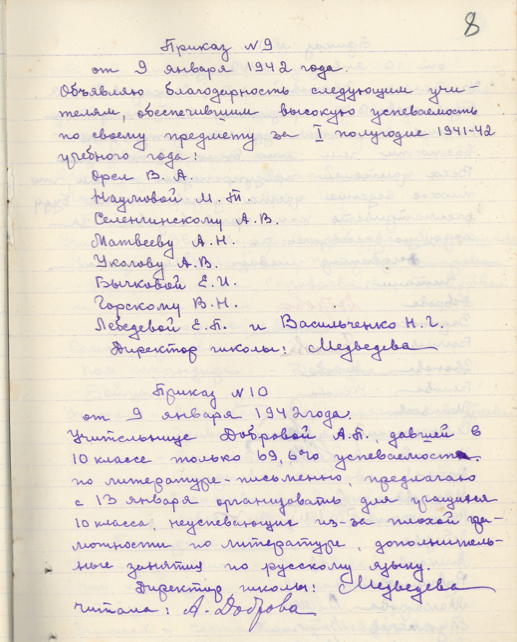 8
Приказ №9
от 9 января 1942 года.
Объявляю благодарность следующим учи-
телям, обеспечившим высокую успеваемость
по своему предмету за I полугодие 1941-42
учебного года:
Орел В. А.
Наумовой М. Т.
Селенгинскому А. В.
Матвееву А. Н.
Уколову А. В.
Бычковой Е. И.
Горскому В. Н.
Лебедевой Е. П. и Васильченко Н. Г.
Директор школы: Медведева
Приказ №10
от 9 января 1942 года.
Учительнице Добровой А. П., давшей в
10 классе только 69,6% успеваемости
по литературе-письменно, предлагаю
с 13 января организовать для учащихся
10 класса, неуспевающих из-за плохой гра-
мотности по литературе, дополнитель-
ные занятия по русскому языку.
Директор школы: Медведева
Читала: А. Доброва